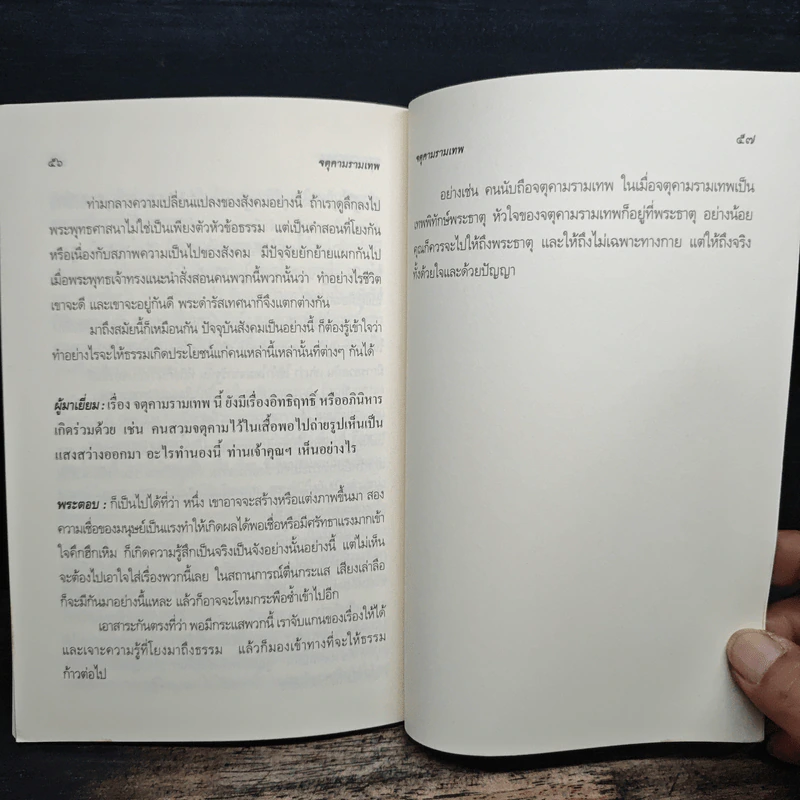 ๕๖
จตุคามรามเทพ
ท่ามกลางความเปลี่ยนแปลงของสังคมอย่างนี้ ถ้าเราดูลึกลงไป
พระพุทธศาสนาไม่ใช่เป็นเพียงตัวหัวข้อธรรม แต่เป็นคำสอนที่โยงกัน
หรือเนื่องกับสภาพความเป็นไปของสังคม มีปัจจัยยักย้ายแผกกันไป
เมื่อพระพุทธเจ้าทรงแนะนำสั่งสอนคนพวกนี้พวกนั้นว่า ทำอย่างไรชีวิต
เขาจะดี และเขาจะอยู่กันดี พระดำรัสเทศนาก็จึงแตกต่างกัน
มาถึงสมัยนี้ก็เหมือนกัน ปัจจุบันสังคมเป็นอย่างนี้ ก็ต้องรู้เข้าใจว่า
ทำอย่างไรจะให้ธรรมเกิดประโยชน์แก่คนเหล่านี้เหล่านั้นที่ต่างๆ กันได้
ผู้มาเยี่ยม : เรื่อง จตุคามรามเทพ นี้ ยังมีเรื่องอิทธิฤทธิ์ หรืออภินิหาร
เกิดร่วมด้วย เช่น คนสวมจตุคามไว้ในเสื้อพอไปถ่ายรูปเห็นเป็น
แสงสว่างออกมา อะไรทำนองนี้ ท่านเจ้าคุณฯ เห็นอย่างไร
พระตอบ : ก็เป็นไปได้ที่ว่า หนึ่ง เขาอาจจะสร้างหรือแต่งภาพขึ้นมา สอง
ความเชื่อของมนุษย์เป็นแรงทำให้เกิดผลได้พอเชื่อหรือมีศรัทธาแรงมากเข้า
ใจคึกฮึกเหิม ก็เกิดความรู้สึกเป็นจริงเป็นจังอย่างนั้นอย่างนี้ แต่ไม่เห็น
จะต้องไปเอาใจใส่เรื่องพวกนี้เลย ในสถานการณ์ตื่นกระแส เสียงเล่าลือ
ก็จะมีกันมาอย่างนี้แหละ แล้วก็อาจจะโหมกระพือซ้ำเข้าไปอีก
เอาสาระกันตรงที่ว่า พอมีกระแสพวกนี้ เราจับแกนของเรื่องให้ได้
และเจาะความรู้ที่โยงมาถึงธรรม แล้วก็มองเข้าทางที่จะให้ธรรม
ก้าวต่อไป
จตุคามรามเทพ
๕๗
อย่างเช่น คนนับถือจตุคามรามเทพ ในเมื่อจตุคามรามเทพเป็น
เทพพิทักษ์พระธาตุ หัวใจของจตุคามรามเทพก็อยู่ที่พระธาตุ อย่างน้อย
คุณก็ควรจะไปให้ถึงพระธาตุ และให้ถึงไม่เฉพาะทางกาย แต่ให้ถึงจริง
ทั้งด้วยใจและด้วยปัญญา